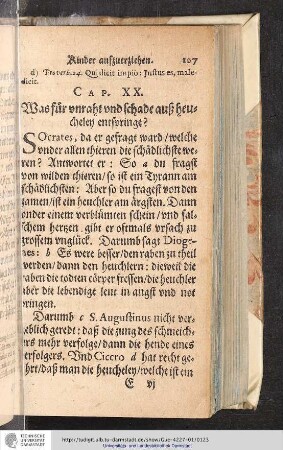 Kinder auffzuerziehen. 107
d) Proverb. 24. Qui dicit impio: Justus es, male-
dicit.
CAP. XX.
Was für vnraht vnd schade auß heu-
cheley entspringt?
SOcrates, da er gefragt ward/welche
vnder allen thieren die schädlichste we-
ren? Antwortet er: So a du fragst
von wilden thieren/so ist ein Tyrann am
schädlichsten: Aber so du fragest von den
zamen/ist ein heuchler am ärgsten. Dann
onder einem verblümten schein/vnd fal-
schem hertzen gibt er oftmals vrsach zu
grossem vnglück. Darumb sagt Dioge-
nes: b Es were besser/den raben zu theil
werden/dann den heuchlern: dieweil die
raben die todten cörper fressen/die heuchler
aber die lebendige leut in angst vnd not
bringen.
Darumb c S. Augustinus nicht ver-
geblich geredt: daß die zung des schmeich-
lers mehr verfolge/dann die hende eines
verfolgers. Vnd Cicero d hat recht ge-
lehrt/daß man die heucheley/welche ist ein
E vj
TECHNISCHE
UNIVERSITÄT
DARMSTADT
http://tudigit.ulb.tu-darmstadt.de/show/Gue-4227-01/0123
Universitäts- und Landesbibliothek Darmstadt